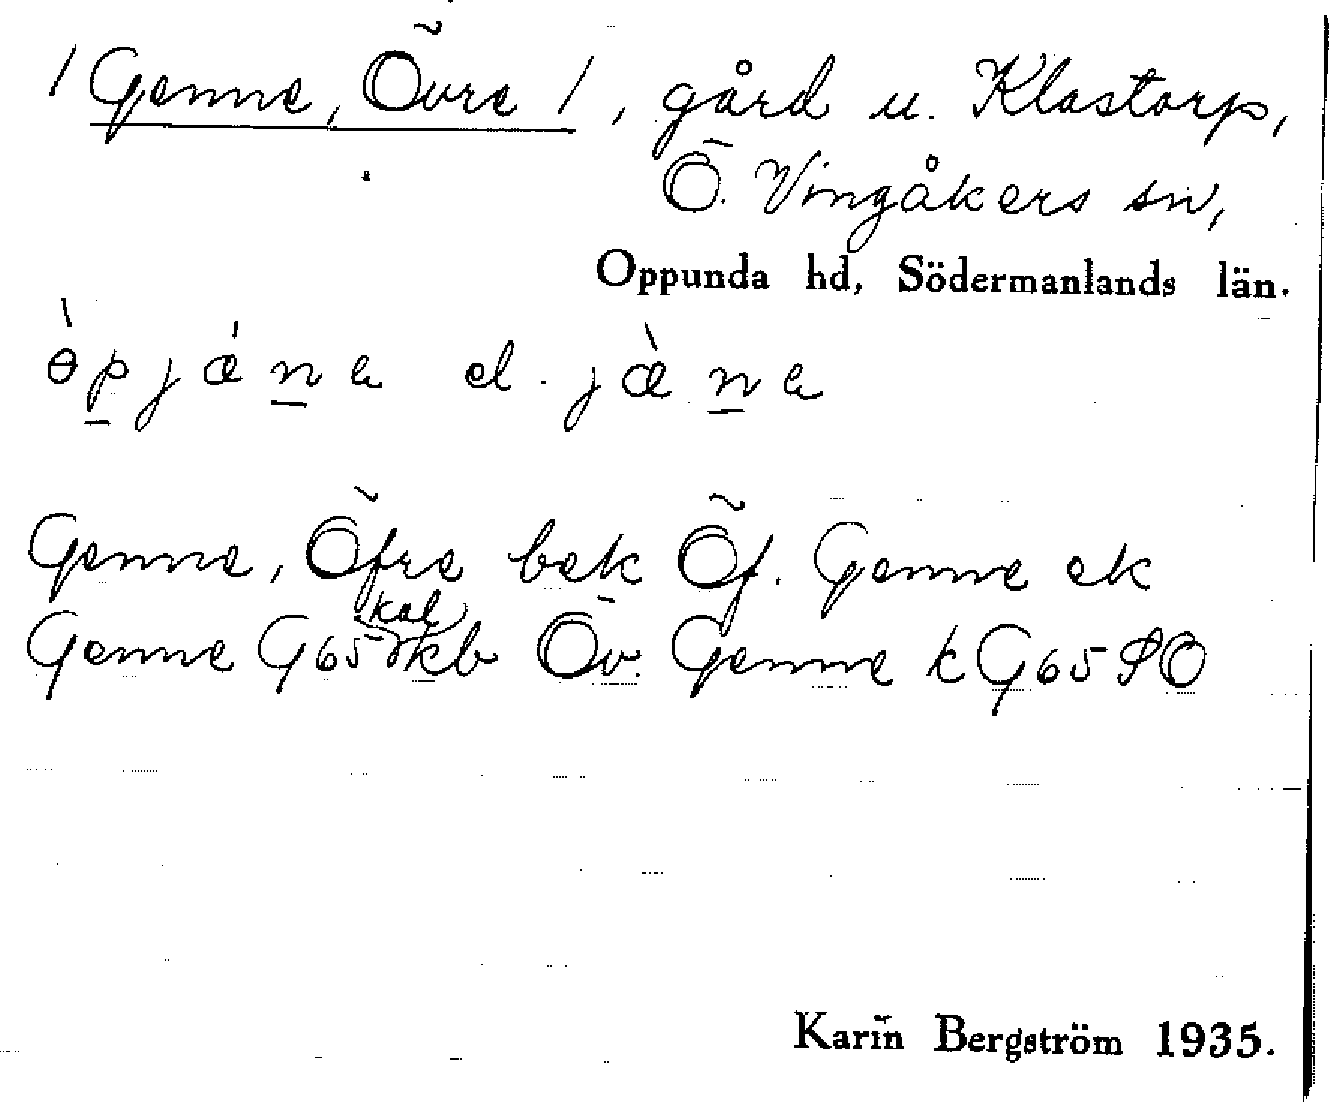 /Genne, Övre/, gård u. Klastorp,
Ö. Vingåkers sn,
Oppunda hd, Södermanlands län.
ɵ̀pjǽna el. jæ̀na
Genne, Öfre bek Öf. Genne ek
Genne G65 kal kb Öv. Genne k G65 SO
Karin Bergström 1935.